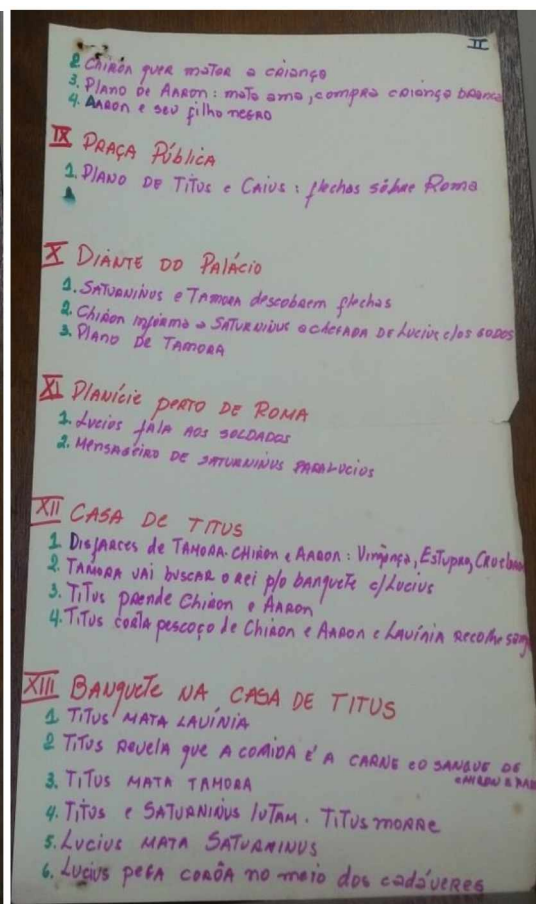 II
2. Chiron quer matar a criança
3. Plano de Aaron: mata ama, compra criança branca
4. Aaron e seu filho negro
IX Praça Pública
1. Plano de Titus e Caius: flechas sôbre Roma
X Diante do Palácio
1. Saturninus e Tamora descobrem flechas
2. Chiron informa a Saturninus a chegada de Lucius c/os godos
3. Plano de Tamora
XI Planície perto de Roma
1. Lucios fala aos soldados
2. Mensageiro de Saturninus para Lucios
XII Casa de Titus
1 Disfarces de Tamora-Chiron e Aaron: Vingança, Estupro,
2. Tamora vai buscar o rei p/o banquete c/Lucius
3. Titus prende Chiron e Aaron
4. Titus corta pescoço de Chiron e Aaron e Lavínia recolhe
XIII Banquete na Casa de Titus
1 Titus mata Lavínia
2 Titus revela que a comida é a carne e o sangue de
Chiron e
3. Titus mata Tamora
4. Titus e Saturninus lutam. Titus morre
5. Lucius mata Saturninus
6. Lucius pega corôa no meio dos cadáveres